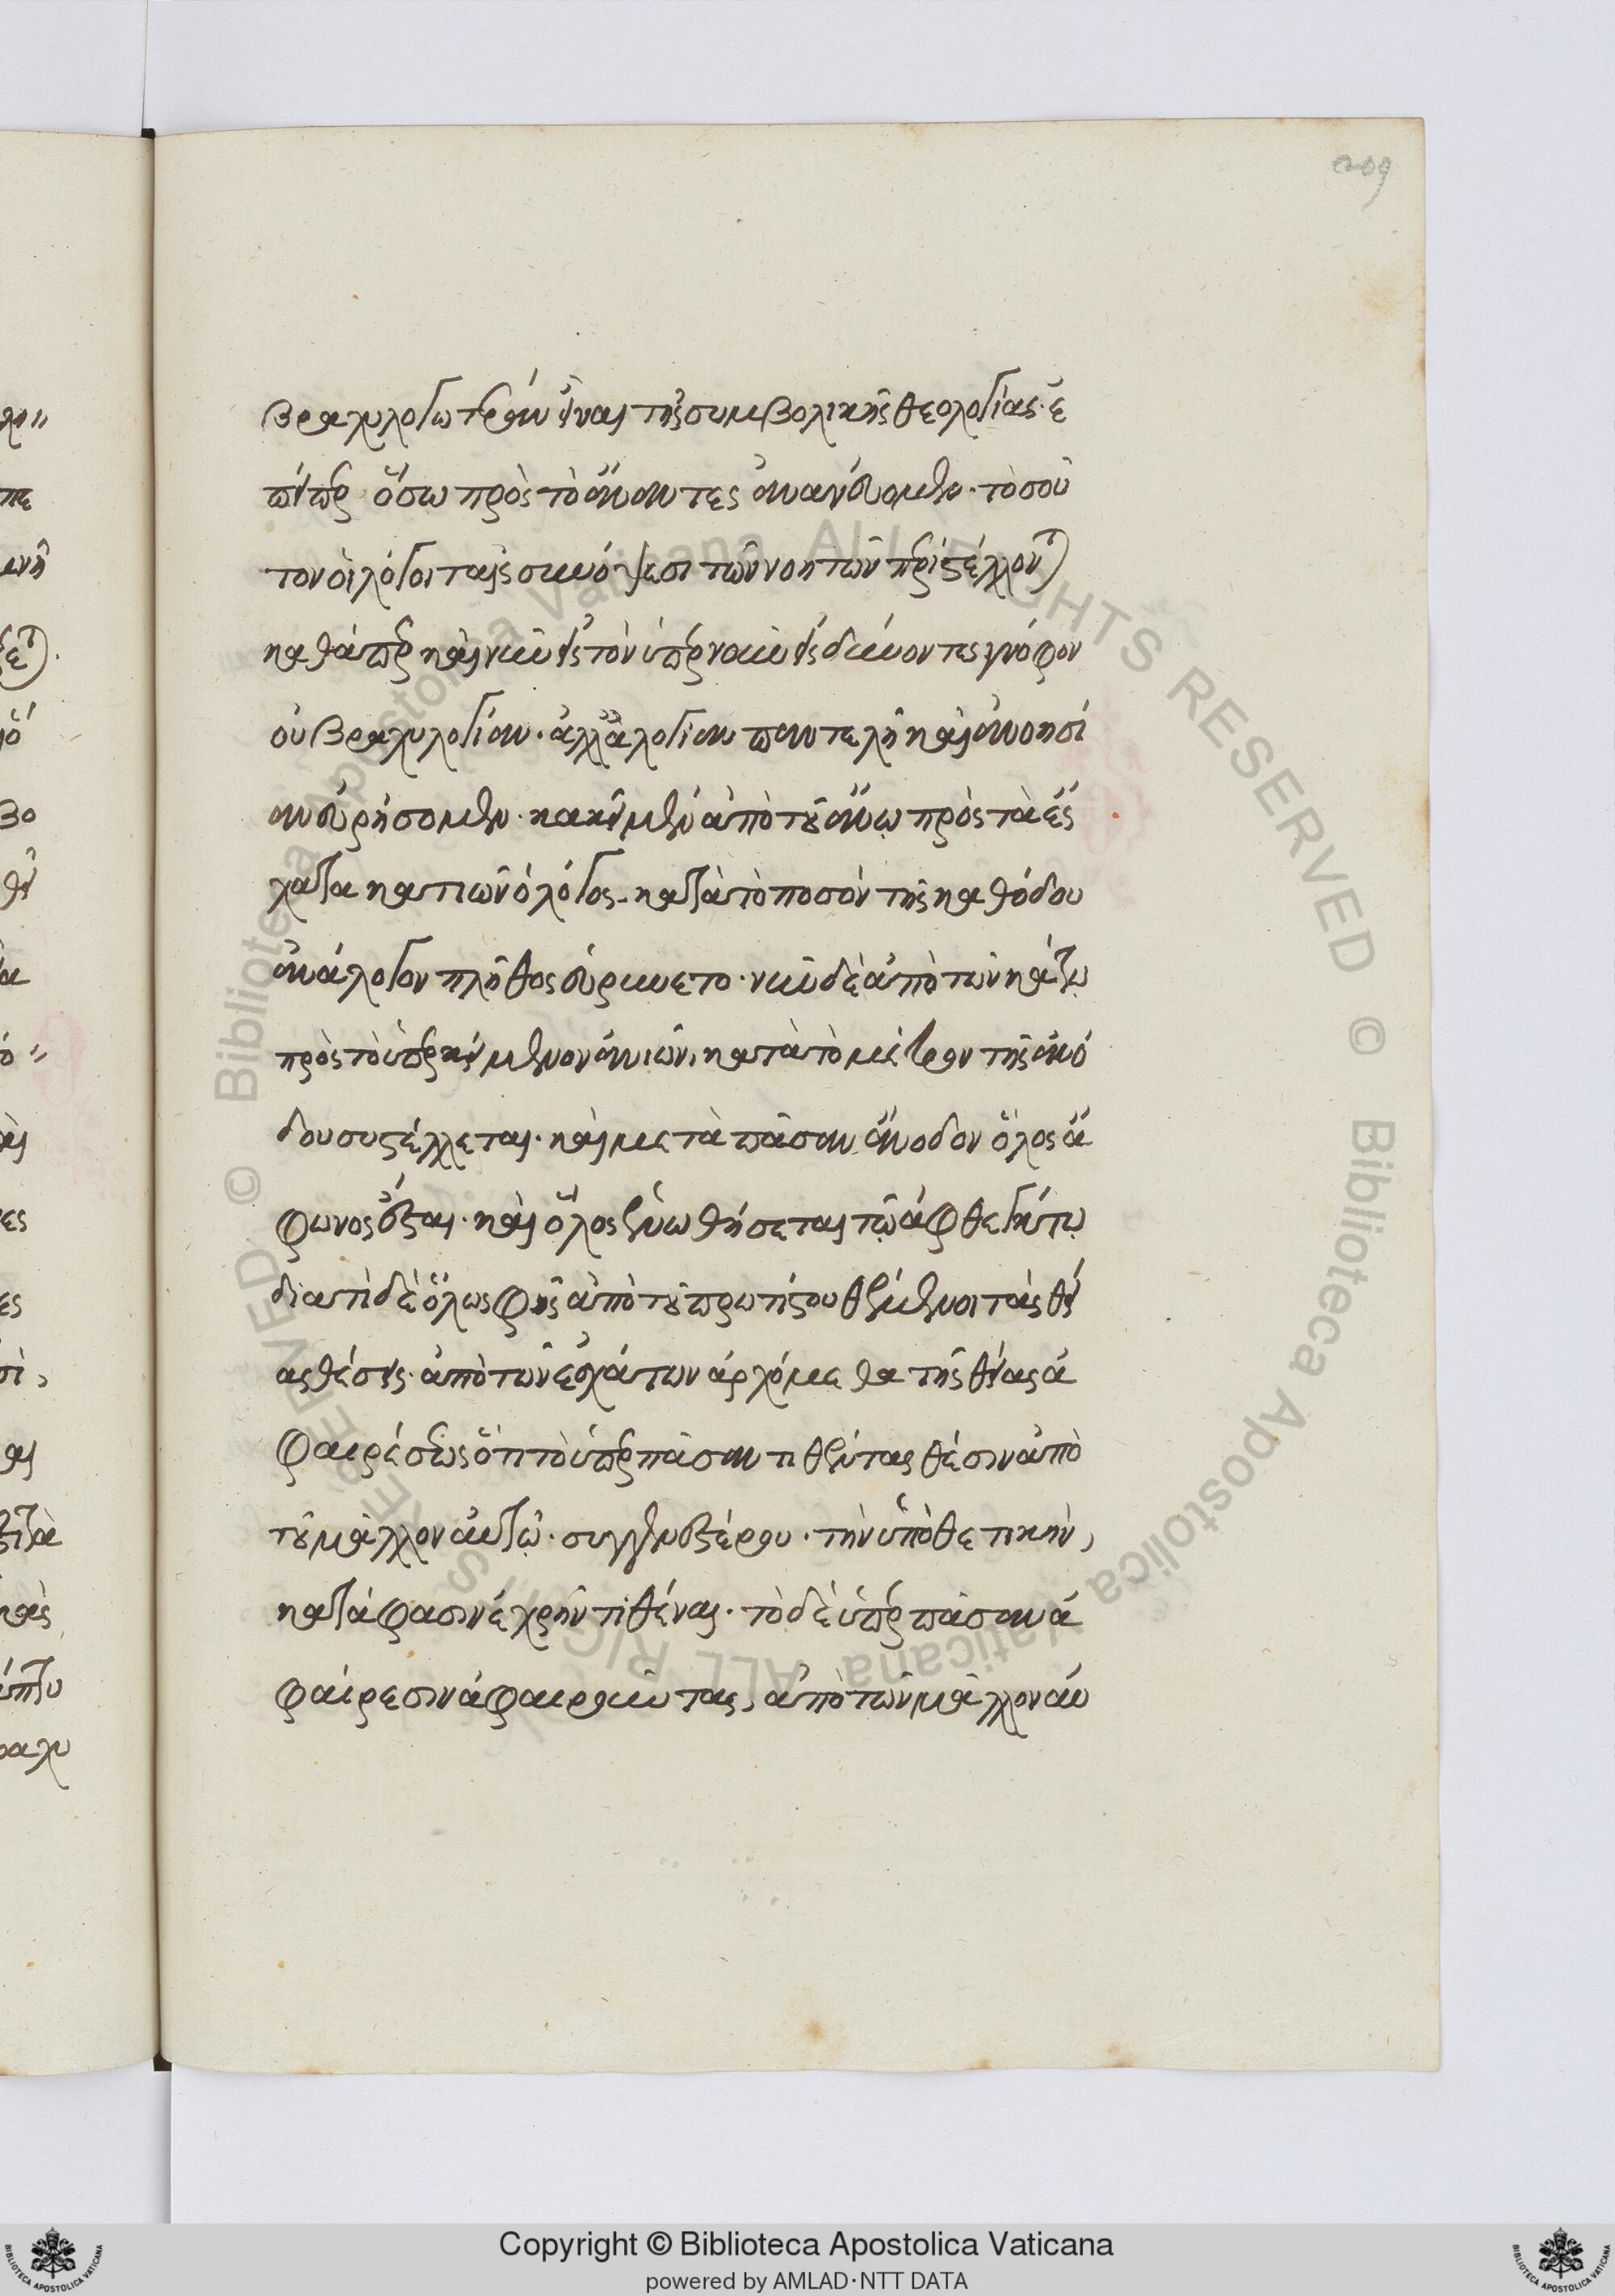 209
βραχυλογωτέραν εἶναι τῆς συμβολικῆς θεολογίας· ἐ
πείπερ ὅσω πρὸς τὸ ἄναντες ἀνανεύομεν· τοσοῦ
τον οἱ λόγοι ταῖς συνόψεσι τῶν νοητῶν περιστέλλονται
καθάπερ καὶ νῦν εἰς τὸν ὑπὲρ νοῦν εἰσδύνοντες γνόφον
οὐ βραχυλογίαν· ἀλλ' ἀλογίαν παντελῆ καὶ ἀνοησί
αν εὑρήσομεν· κἀκεῖ μὲν ἀπὸ τοῦ ἄνω πρὸς τὰ ἔσ
χατα κατιὼν ὁ λόγος· κατὰ τὸ ποσὸν τῆς καθόδου
ἀνάλογον πλῆθος εὑρύνετο· νῦν δὲ ἀπὸ τῶν κάτω
πρὸς τὸ ὑπερκείμενον ἀνιών, κατὰ τὸ μέτρον τῆς ἀνό
δου συστέλλεται· καὶ μετὰ πᾶσαν ἄνοδον ὅλος ἄ
φωνος ἔσται· καὶ ὅλος ἑνωθήσεται τῷ ἀφθέγκτῳ
διατί δὲ ὅλως φῂς ἀπὸ τοῦ πρωτίστου θέμενοι τὰς θεί
ας θέσεις· ἀπὸ τῶν ἐσχάτων ἀρχόμεθα τῆς θείας ἀ
φαιρέσεως ὅτι τὸ ὑπὲρ πᾶσαν τιθέντας θέσιν ἀπὸ
τοῦ μᾶλλον αὐτῷ· συγγενεστέρου· τὴν ὑποθετικὴν,
κατάφασιν ἐχρῆν τιθέναι· τὸ δὲ ὑπὲρ πᾶσαν ἀ
φαίρεσιν ἀφαιροῦντας, ἀπὸ τῶν μᾶλλον αὐ
Copyright © Biblioteca Apostolica Vaticana
powered by AMLAD·NTT DATA
© Biblioteca Apostolica Vaticana ALL RIGHTS RESERVED
© Biblioteca Apostolica Vaticana ALL RIGHTS RESERVED